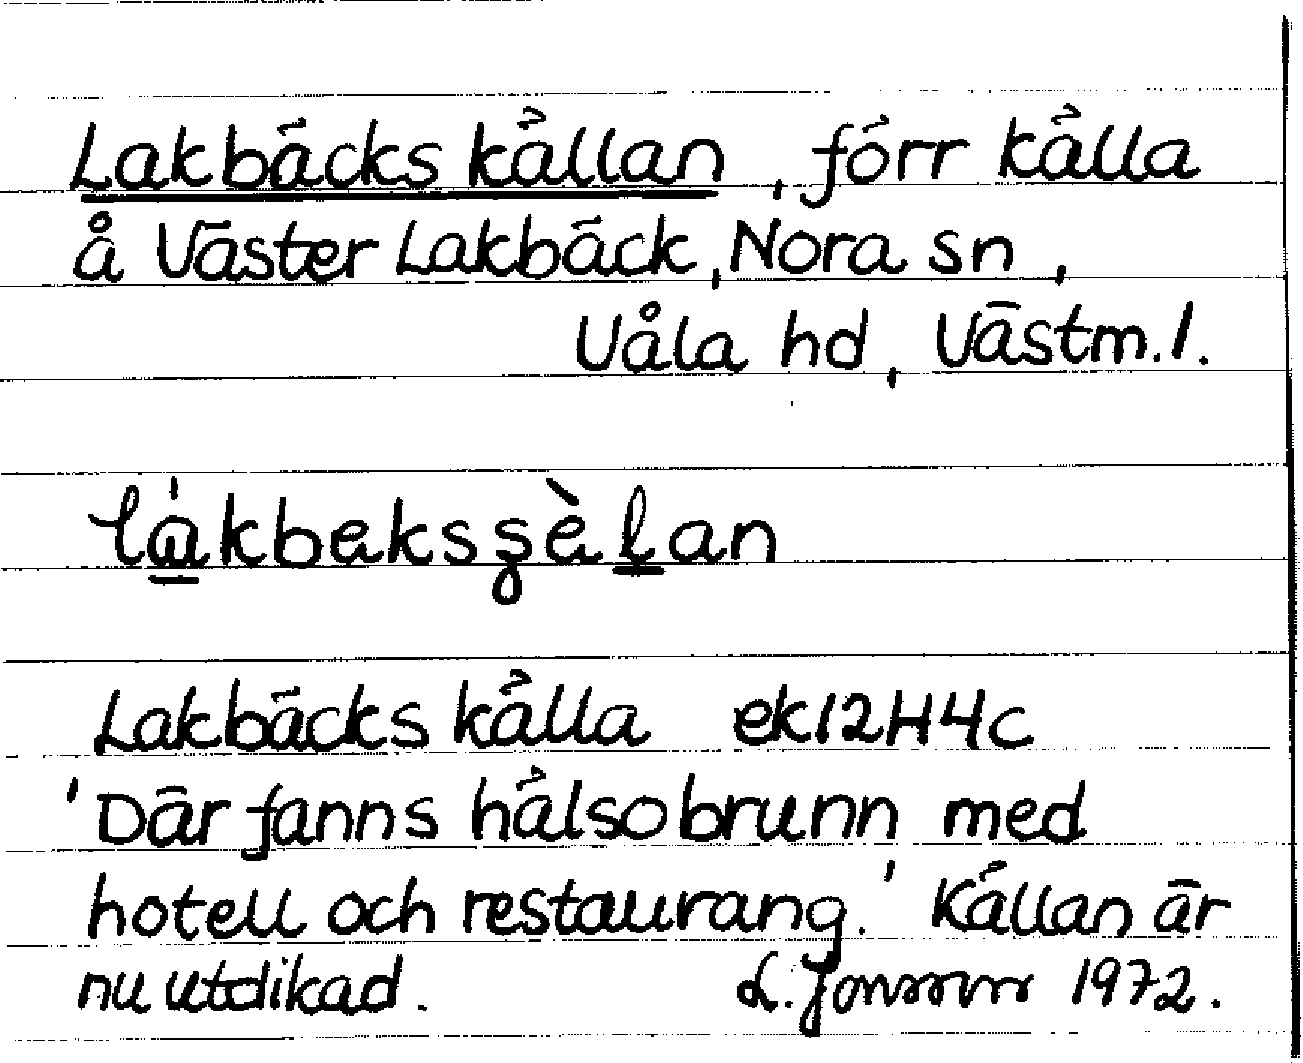 Lakbäcks källan, förr källa
å Väster Lakbäck, Nora sn,
Våla hd, Västm. l.
Lakbäcks källa ek12H4c
'Där fanns hälsobrunn med
hotell och restaurang.' Källan är
nu utdikad. L. Jonsson 1972.